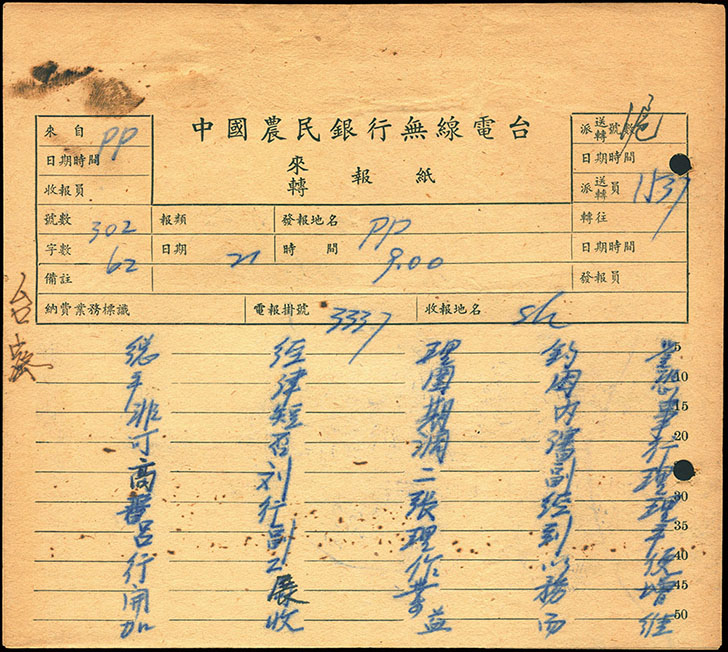 中國農民銀行無線電台
來轉報紙
來自 PP
日期時間
收報員
派送轉號數 滬
日期時間
派送轉員 1537
號數 302 報類 發報地名 PP 轉往
字數 62 日期 21 時間 9.00 日期時間
備註 發報員
納費業務標識 電報掛號 3337 收報地名 sh
總經理鈞鑒 5
平津圍困恐 10
非短期内事 15
可否調瀋行 20
高刘二副理
晉行張經理 30
呂副理到平 35
行工作以便 40
開展業務增 45
加收益而維 50